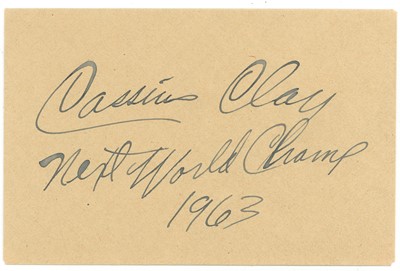 Cassius Clay
Next World Champ
1963